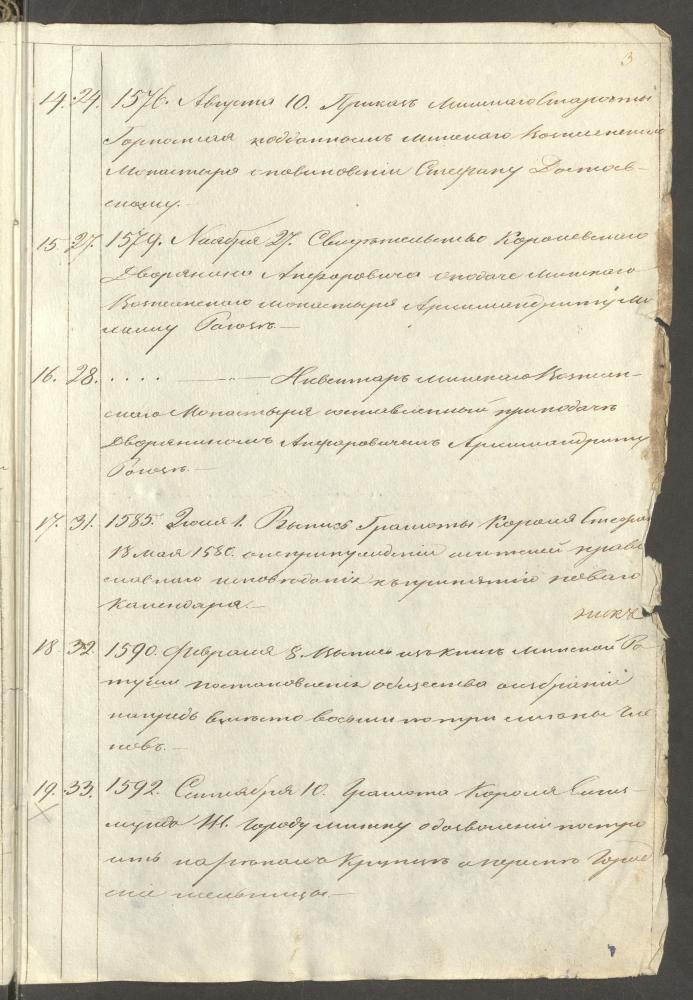 3
14. 24. 1576. Августа 10. Приказъ Минскаго Старосты
Горностая подданнымъ минскаго Вознесенскаго
Монастыря о повиновеніи Стефану Достоев-
скому.
15 27. 1579. Ноября 27. Свидѣтельство Королевскаго
Дворянина Анфоровича о подаче Минскаго
Вознесенскаго монастыря Архимандриту Ми-
хаилу Рагозѣ.—
16. 28. . . . . — „ — Инвентарь минскаго Вознесен-
скаго Монастыря составленный при подачѣ
Дворяниномъ Анфоровичемъ Архимандриту
Рагозѣ.—
17. 31. 1585. Іюля 1. Выпись Грамоты Короля Стефана
18 мая 1580. о непринужденіи мѣщанъ право
славнаго исповѣданія къ принятію новаго
Календаря.—
18 32. 1590. Февраля 8. Выпись изъ книгъ Минской Ра-
туши постановленія общества о избраніи
впредь вмѣсто восьми по три
новъ.—
19. 33. 1592. Сентября 10. Грамота Короля Сигиз-
мунда III. городу минску о дозволеніи постро
ить на рѣкахъ
мельницы—